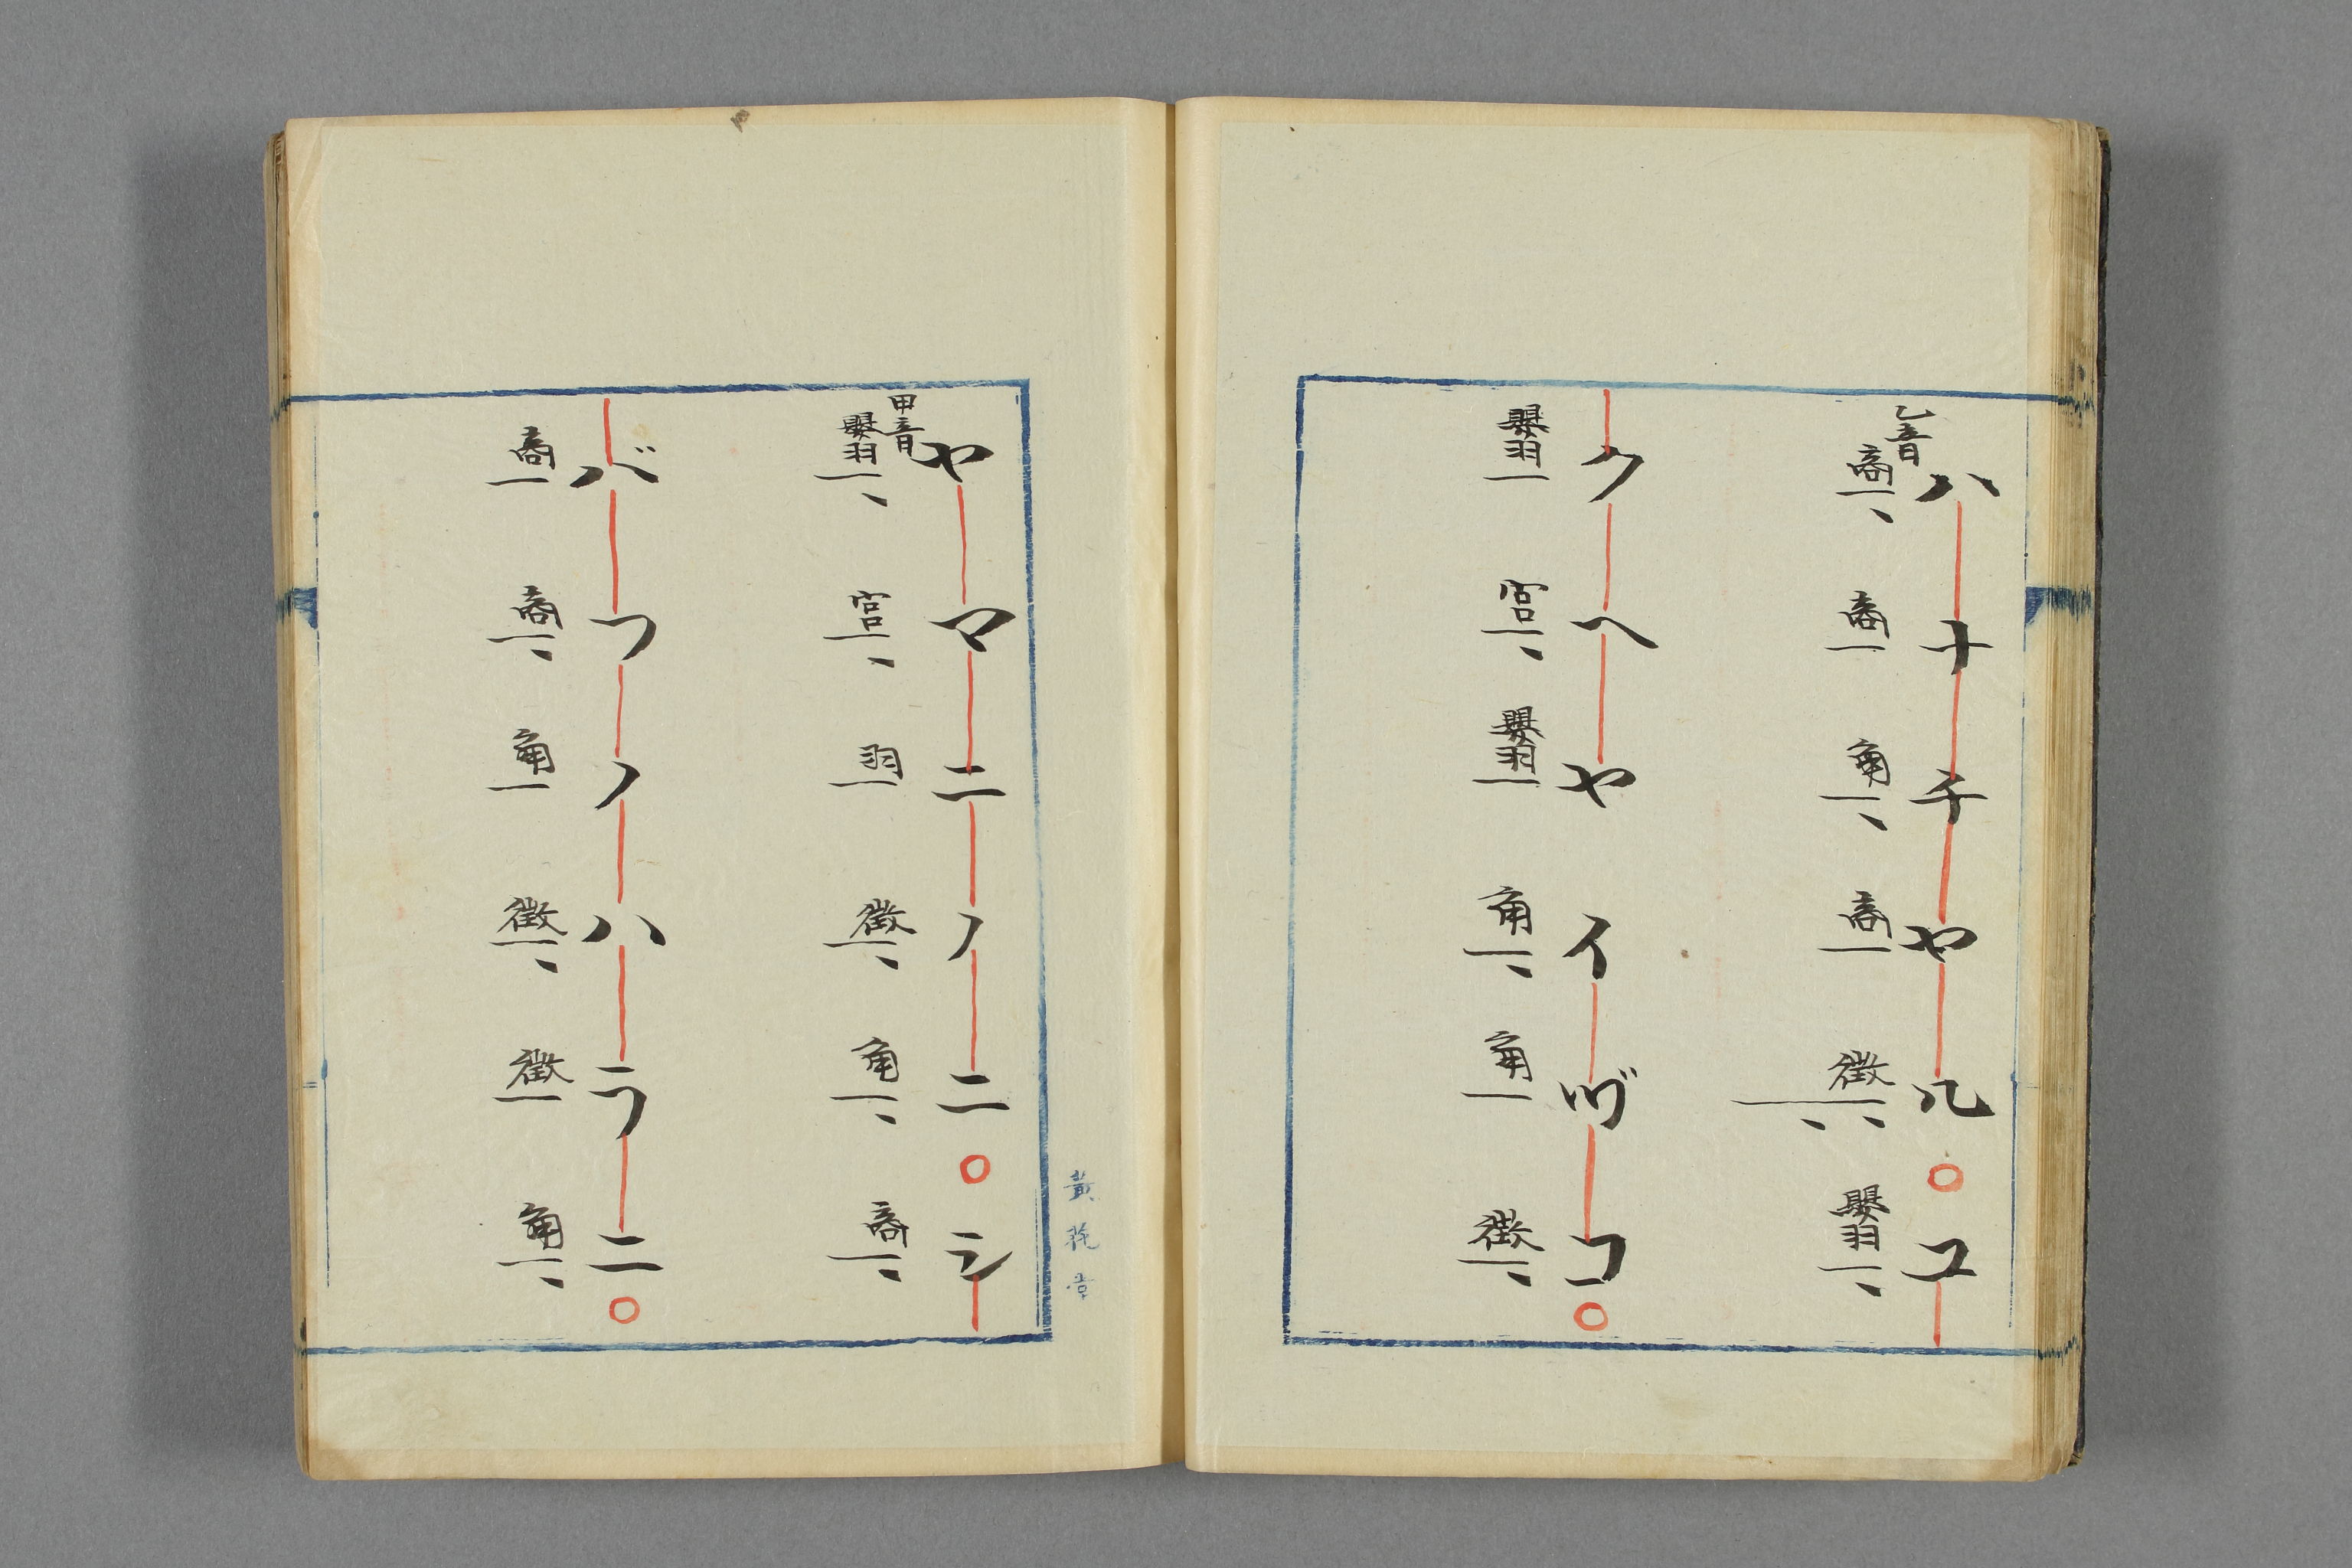 ハナチヤル○ユ
乙音
商 商 角 商 徴 嬰羽
クヘヤイヅコ○
嬰羽 宮 嬰羽 角 角 徴
ヤマニノニ○シ
甲音
嬰羽 宮 羽 徴 角 商
バフノハラニ○
商 商 角 徴 徴 角